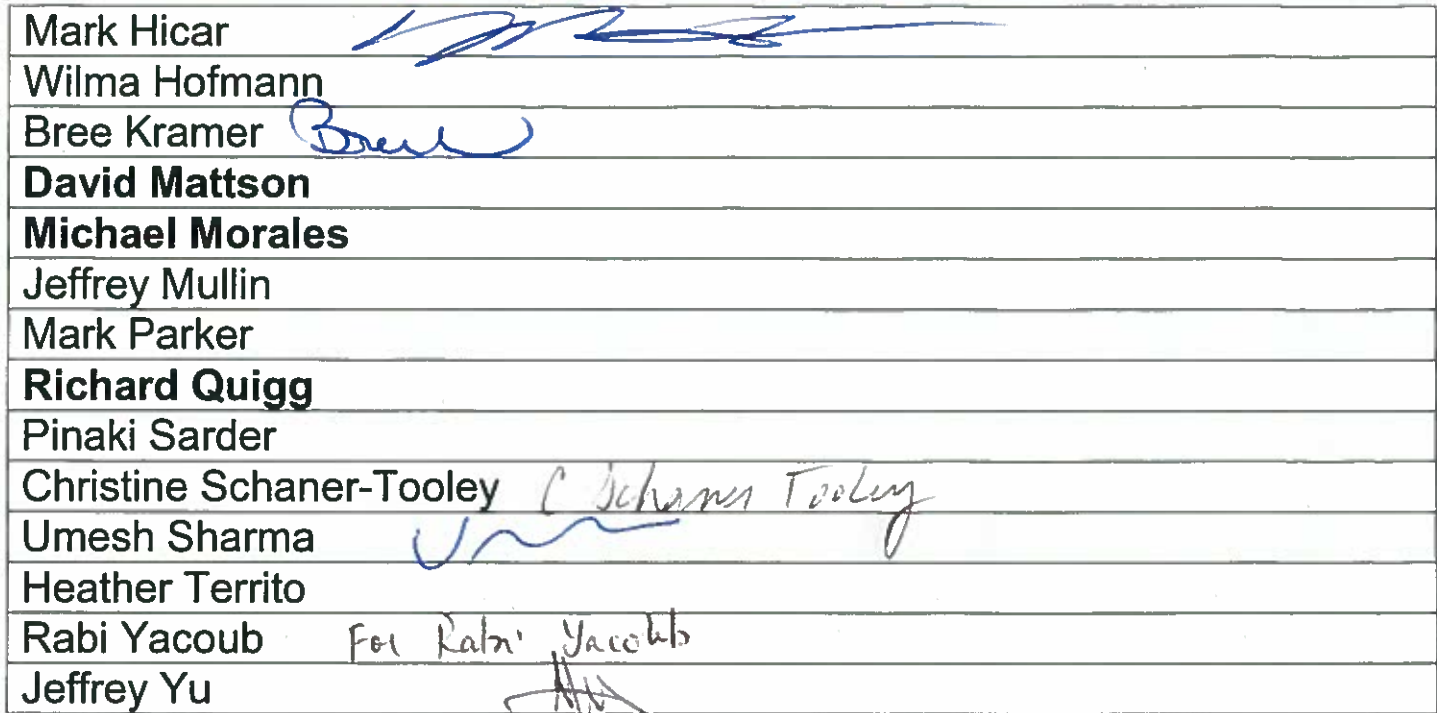 Mark Hicar
Wilma Hofmann
Bree Kramer Bree
David Mattson
Michael Morales
Jeffrey Mullin
Mark Parker
Richard Quigg
Pinaki Sarder
Christine Schaner-Tooley C Schaner Tooley
Umesh Sharma
Heather Territo
Rabi Yacoub For Rabi Yacoub
Jeffrey Yu